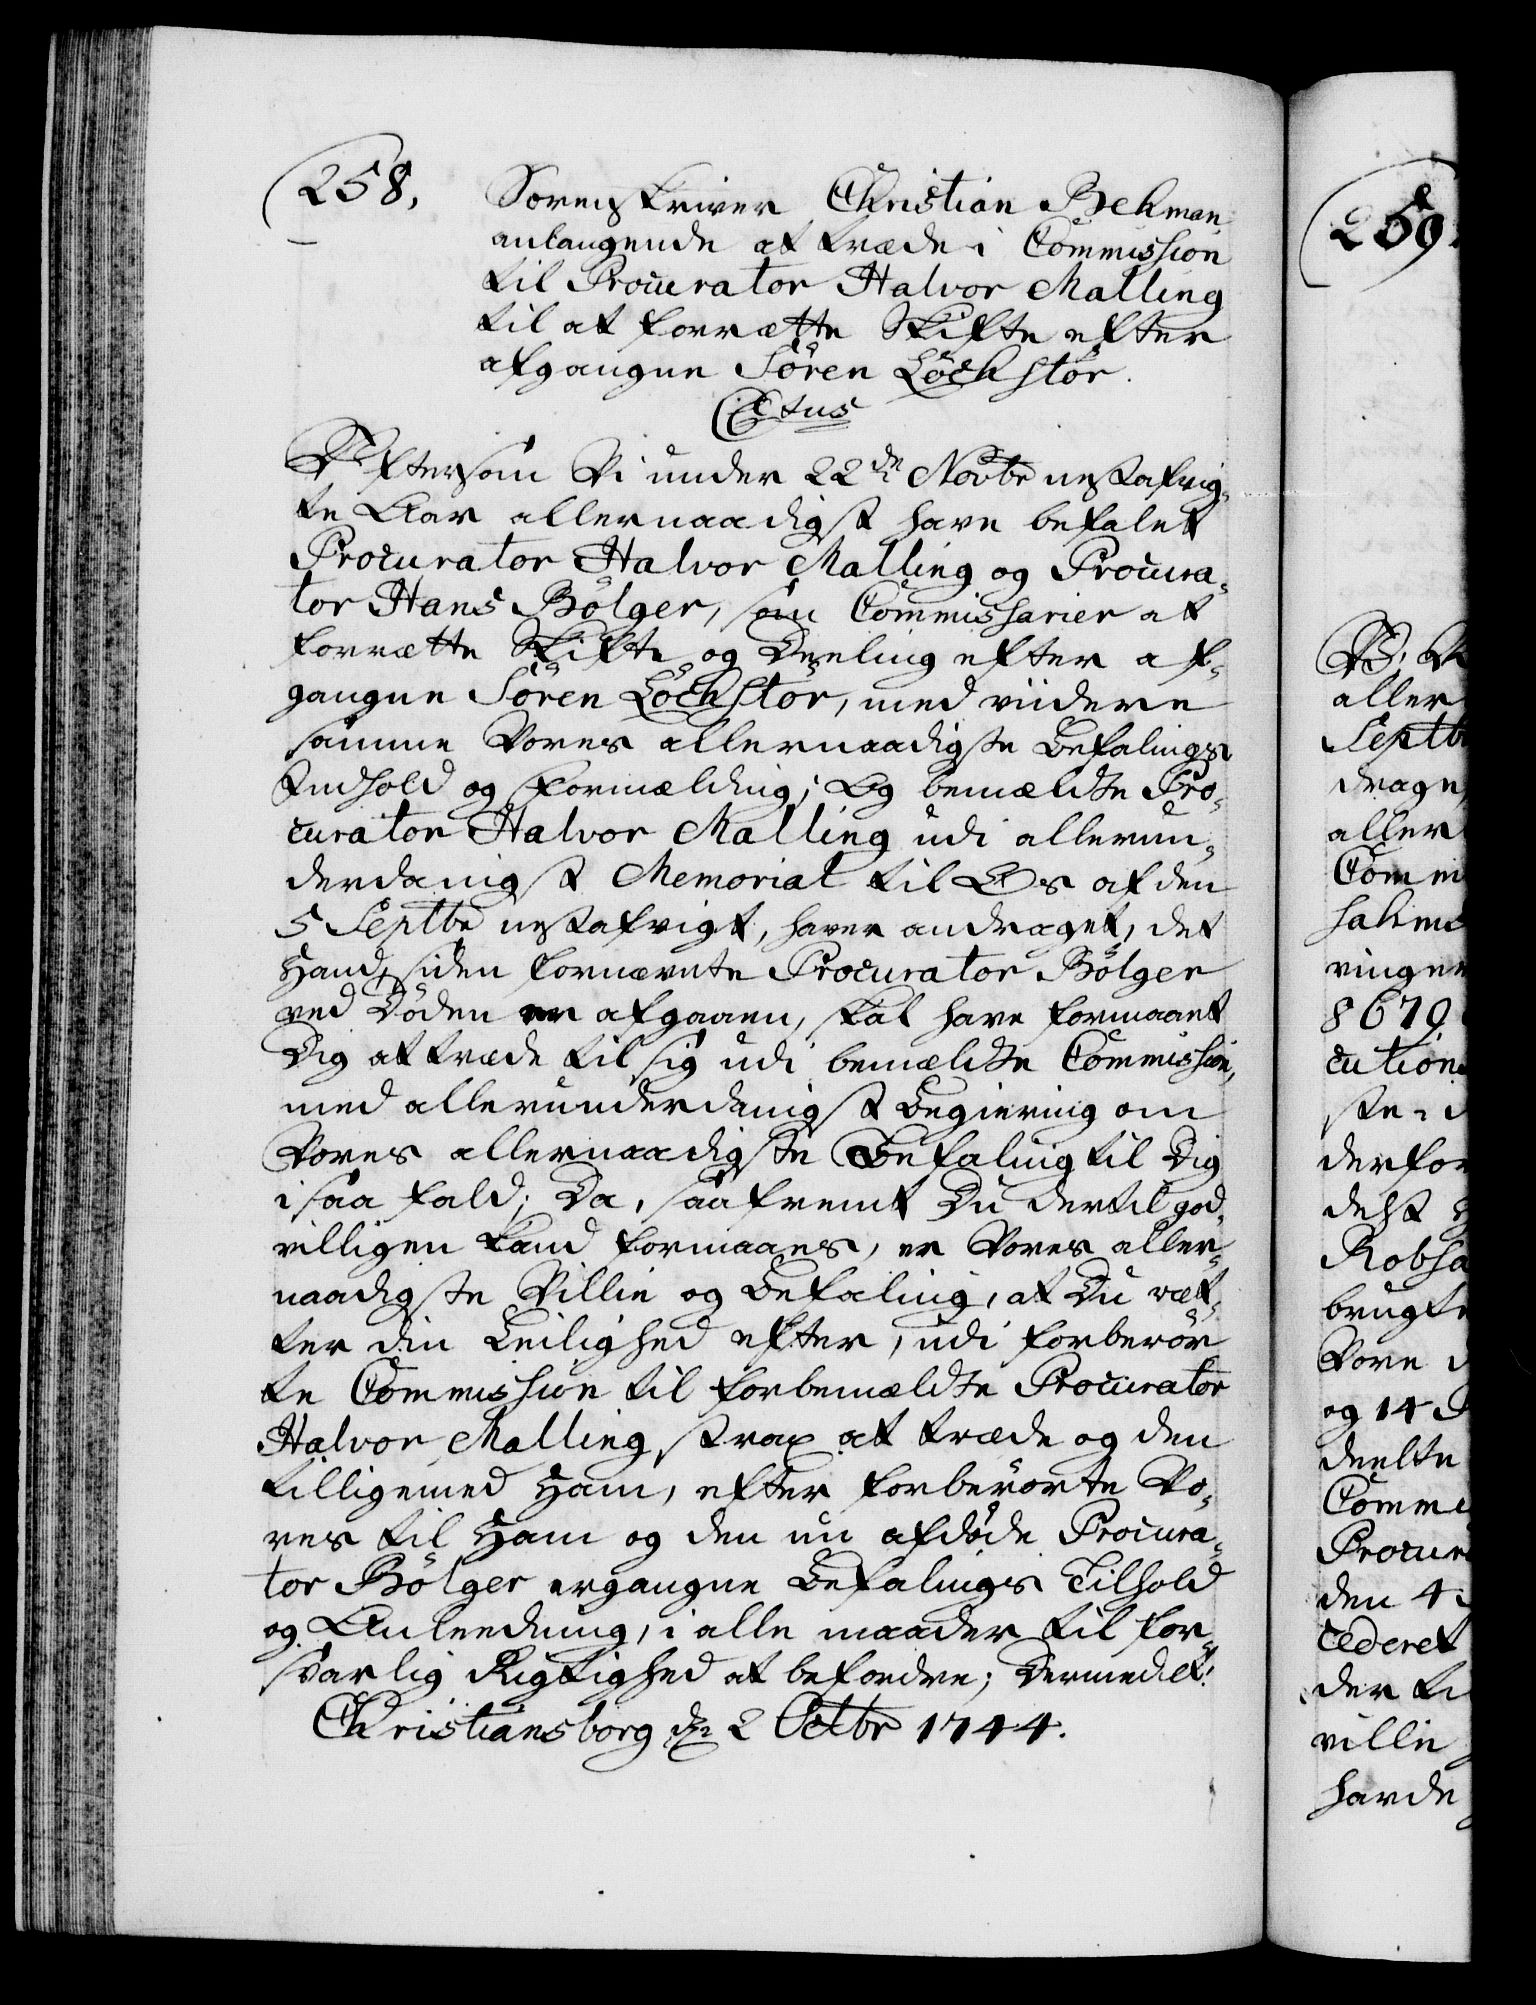 258.
Sorenskriver Christian Bekman
anlangende at træde i Commission
til Procurator Halvor Malling
til at forrætte Skifte efter
afgangne Sören Löchstör.
C6tus
Eftersom Vi under 22de Novbr nestafvig-
te Aar allernaadigst have befalet
Procurator Halvor Malling og Procura-
tor Hans Bölger, som Commissarier at
forrætte Skifte og Deeling efter af-
gangne Sören Löchstör, med viidere
samme Vores allernaadigste Befalings
Indhold og Formælding; Og bemældte Pro-
curator Halvor Malling udi allerun-
derdanigst Memorial til Os af den
5 Septbr nestafvigt, haver andraget, det
Hand, siden fornævnte Procurator Bölger
ved Döden er afgaaen, skal have formaaet
Dig at træde til sig udi bemældte Commission,
med allerunderdanigst Begiering om
Vores allernaadigste Befaling til Dig
i saa fald; Da, saafremt Du dertil god-
villigen kand formaaes, er Vores aller-
naadigste Villie og Befaling, at Du ret-
ter din Leilighed efter, udi forberör-
te Commission til forbemældte Procurator
Halvor Malling strax at træde og den
tilligemed Ham, efter forberörte Vo-
res til Ham og den nu afdöde Procura-
tor Bölger ergangne Befalings Tilhold
og Anleedning, i alle maader til for-
svarlig Rigtighed at befordre; Dermed et:
Christiansborg dn 2 Octbr 1744.
259.
aller
Septbr
drage,
aller
Commi
ringer
8679
cution
derfor
brugte
Vore
og 14
deelte
Comm
Procur
den 4
cederet
der ti
villie
havde